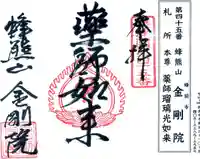 第四十五番 蜂熊山 蜂前寺
札所 本尊 金剛院
薬師瑠璃光如来
奉拝
薬師如来
蜂熊山
金剛院